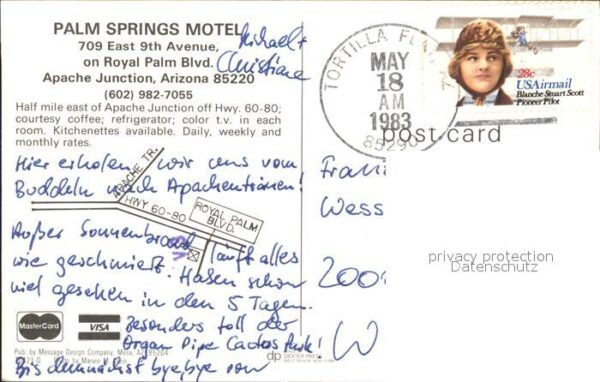 PALM SPRINGS MOTEL
709 East 9th Avenue,
on Royal Palm Blvd.
Apache Junction, Arizona 85220
(602) 982-7055
Half mile east of Apache Junction off Hwy. 60-80;
courtesy coffee; refrigerator; color t.v. in each
room. Kitchenettes available. Daily, weekly and
monthly rates.
Michael +
Christiane
Hier erholen wir uns vom
Buddeln nach Apachentränen!
Außer Sonnenbrand läuft alles
wie geschmiert. Haben schon
viel gesehen in den 5 Tagen.
Besonders toll der
Organ Pipe Cactus Park!
Bis demnächst bye, bye
APACHE TR.
HWY 60-80
ROYAL PALM
BLVD.
MasterCard
VISA
Pub. by Message Design Company, Mesa, AZ 85204
dp
DEXTER PRESS
TORTILLA
MAY
18
AM
1983
85290
28c
USAirmail
Blanche Stuart Scott
Pioneer Pilot
post card
Wess
200
W
privacy protection
Datenschutz